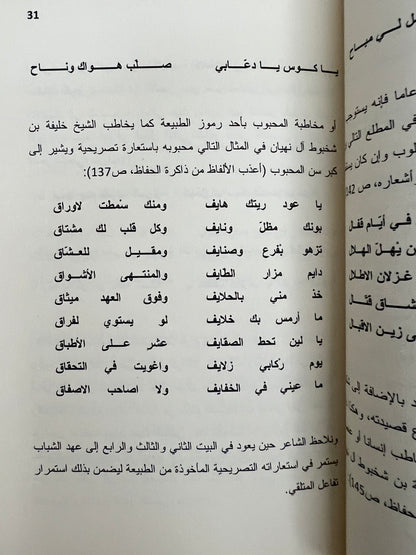 31
يا كوس يا دغابي صلب هواك وناح
أو مخاطبة المحبوب بأحد رموز الطبيعة كما يخاطب الشيخ خليفة بن
شخبوط آل نهيان في المثال التالي محبوبه باستعارة تصريحية ويشير إلى
كبر سن المحبوب (أعذب الألفاظ من ذاكرة الحفاظ، ص137):
يا عود ريتك هايف ومنك سمطت لاوراق
بونك مظلّ ونايف وكل قلب لك مشتاق
تزهو بفرع وصنايف ومقيل للعشّاق
دايم مزار الطايف والمنتهى الأشواق
خذ مني بالحلايف وفوق العهد ميثاق
ما أرمس بك خلايف لو يستوي لفراق
يا لين تحط الصقايف عشر على الأطباق
يوم ركابي زلايف واغويت في التحقاق
ما عيني في الخفايف ولا اصاحب الاصفاق
ونلاحظ الشاعر حين يعود في البيت الثاني والثالث والرابع إلى عهد الشباب
يستمر في استعاراته التصريحية المأخوذة من الطبيعة ليضمن بذلك استمرار
تفاعل المتلقي.
ل لي مباح
عاما فإنه يستوجب
في المطلع التالي
لوب وإن كان
أشعاره، ص 142
في أيام قفل
ن يهل الهلال
غزلان الاطلال
شاق قتل
ى زين الاقبل
د بالإضافة إلى
قصيدته،
اطب إنسانا أو
ة بن شخبوط
الحفاظ، ص145)